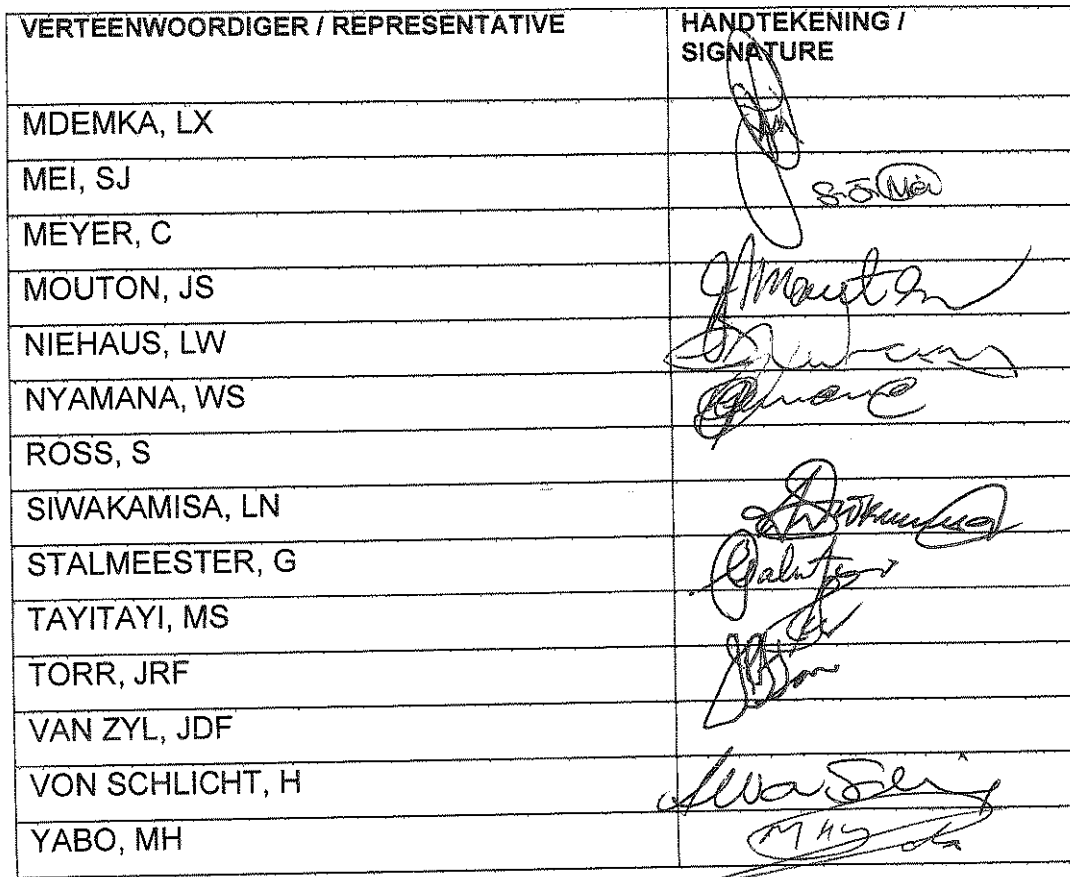 VERTEENWOORDIGER / REPRESENTATIVE
HANDTEKENING /
SIGNATURE
MDEMKA, LX
MEI, SJ
S.J. Mei
MEYER, C
MOUTON, JS
JSMouton
NIEHAUS, LW
NYAMANA, WS
ROSS, S
SIWAKAMISA, LN
STALMEESTER, G
TAYITAYI, MS
TORR, JRF
VAN ZYL, JDF
VON SCHLICHT, H
YABO, MH